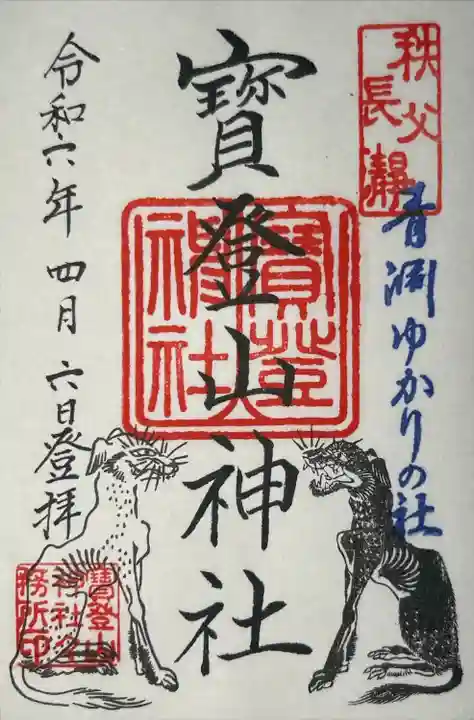 秩父
長瀞
青淵ゆかりの社
寶登山神社
寶登山
神社
令和六年四月六日登拝
寶登山
神社社
務所印